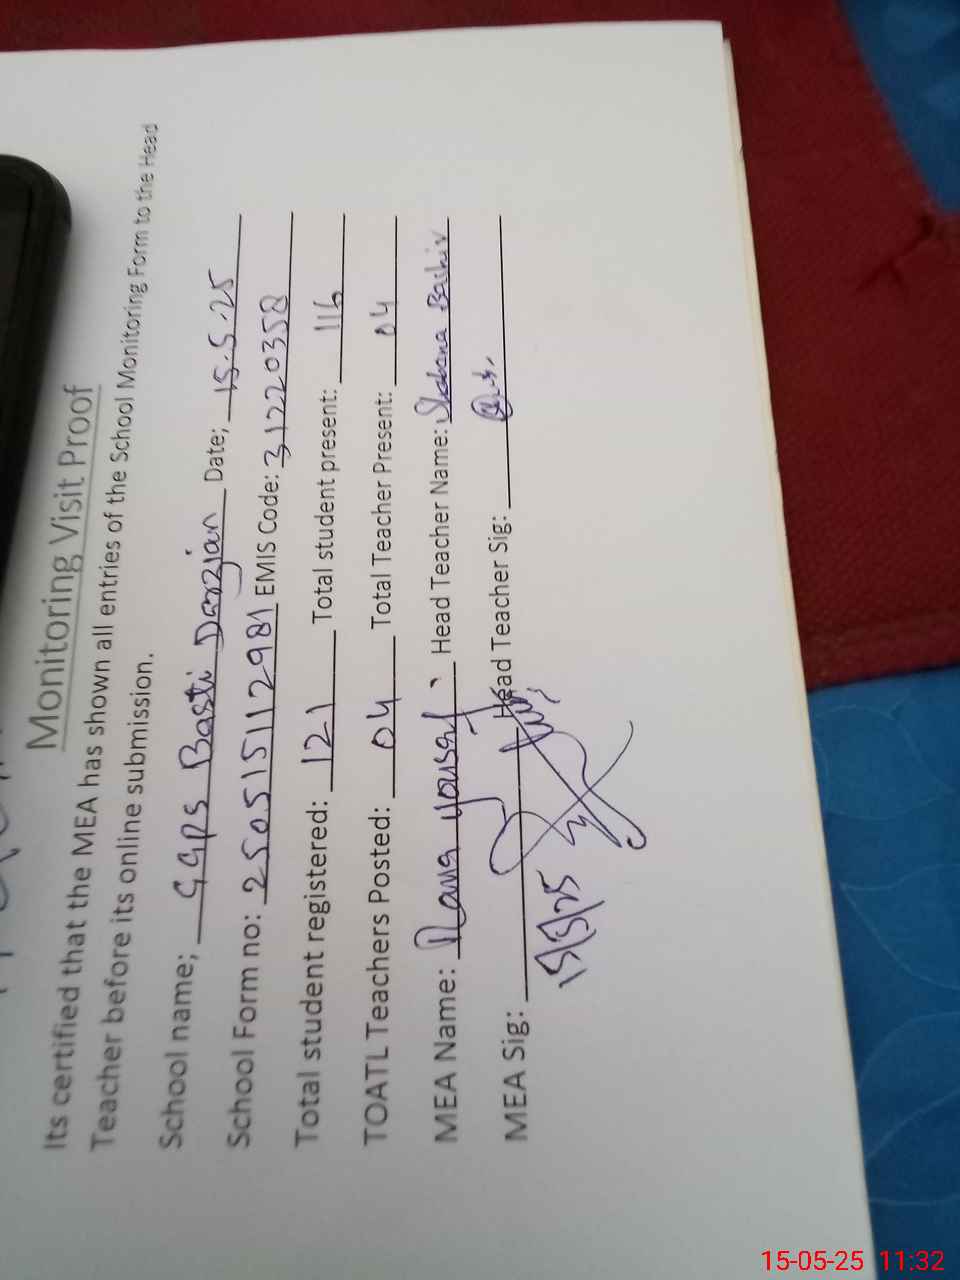 Monitoring Visit Proof
Its certified that the MEA has shown all entries of the School Monitoring Form to the Head
Teacher before its online submission.
School name; GGPS Basti Darzian Date; 15-5-25
School Form no: 250515112981 EMIS Code: 31220358
Total student registered: 121 Total student present: 116
TOATL Teachers Posted: 04 Total Teacher Present: 04
MEA Name: Rana yousaf Head Teacher Name: Shabana Bashir
MEA Sig: Head Teacher Sig:
15/5/25
15-05-25 11:32